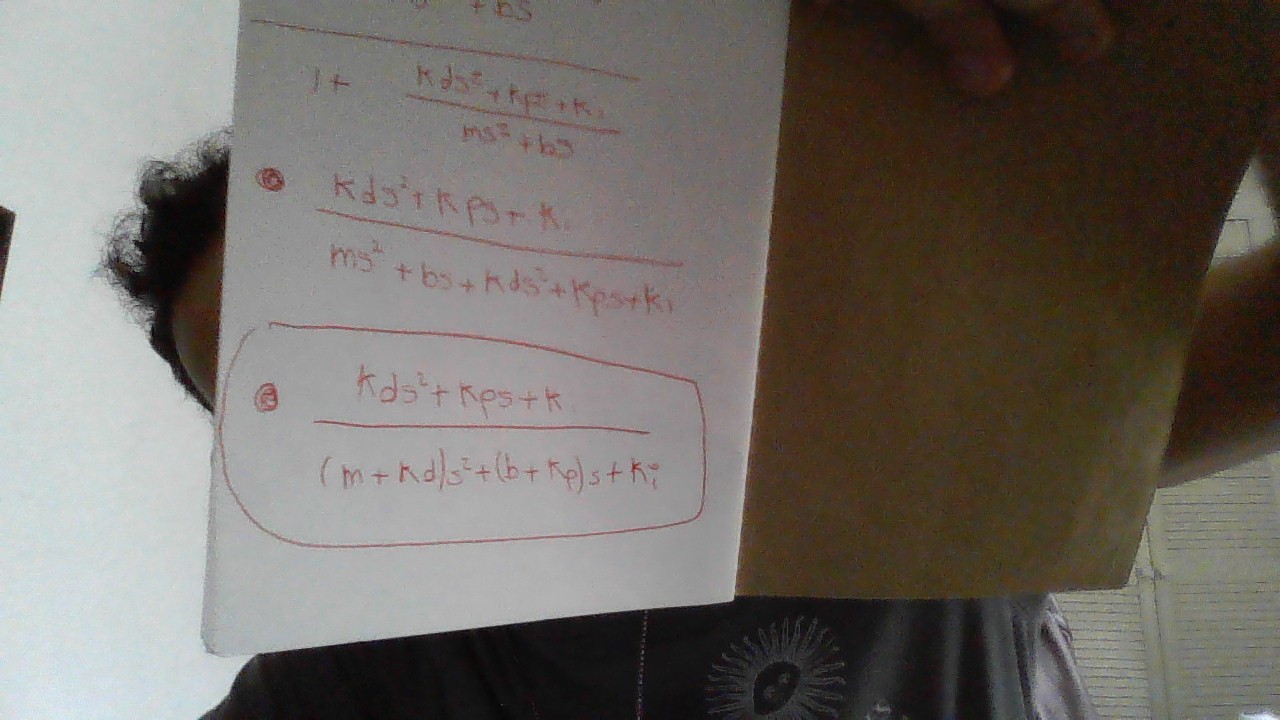 + bs
1 + kds²+kps+ki
ms² + bs
kds²+kps+ki
ms² + bs + kds²+kps+ki
kds²+kps+k
(m+kd)s²+(b+kp)s+ki